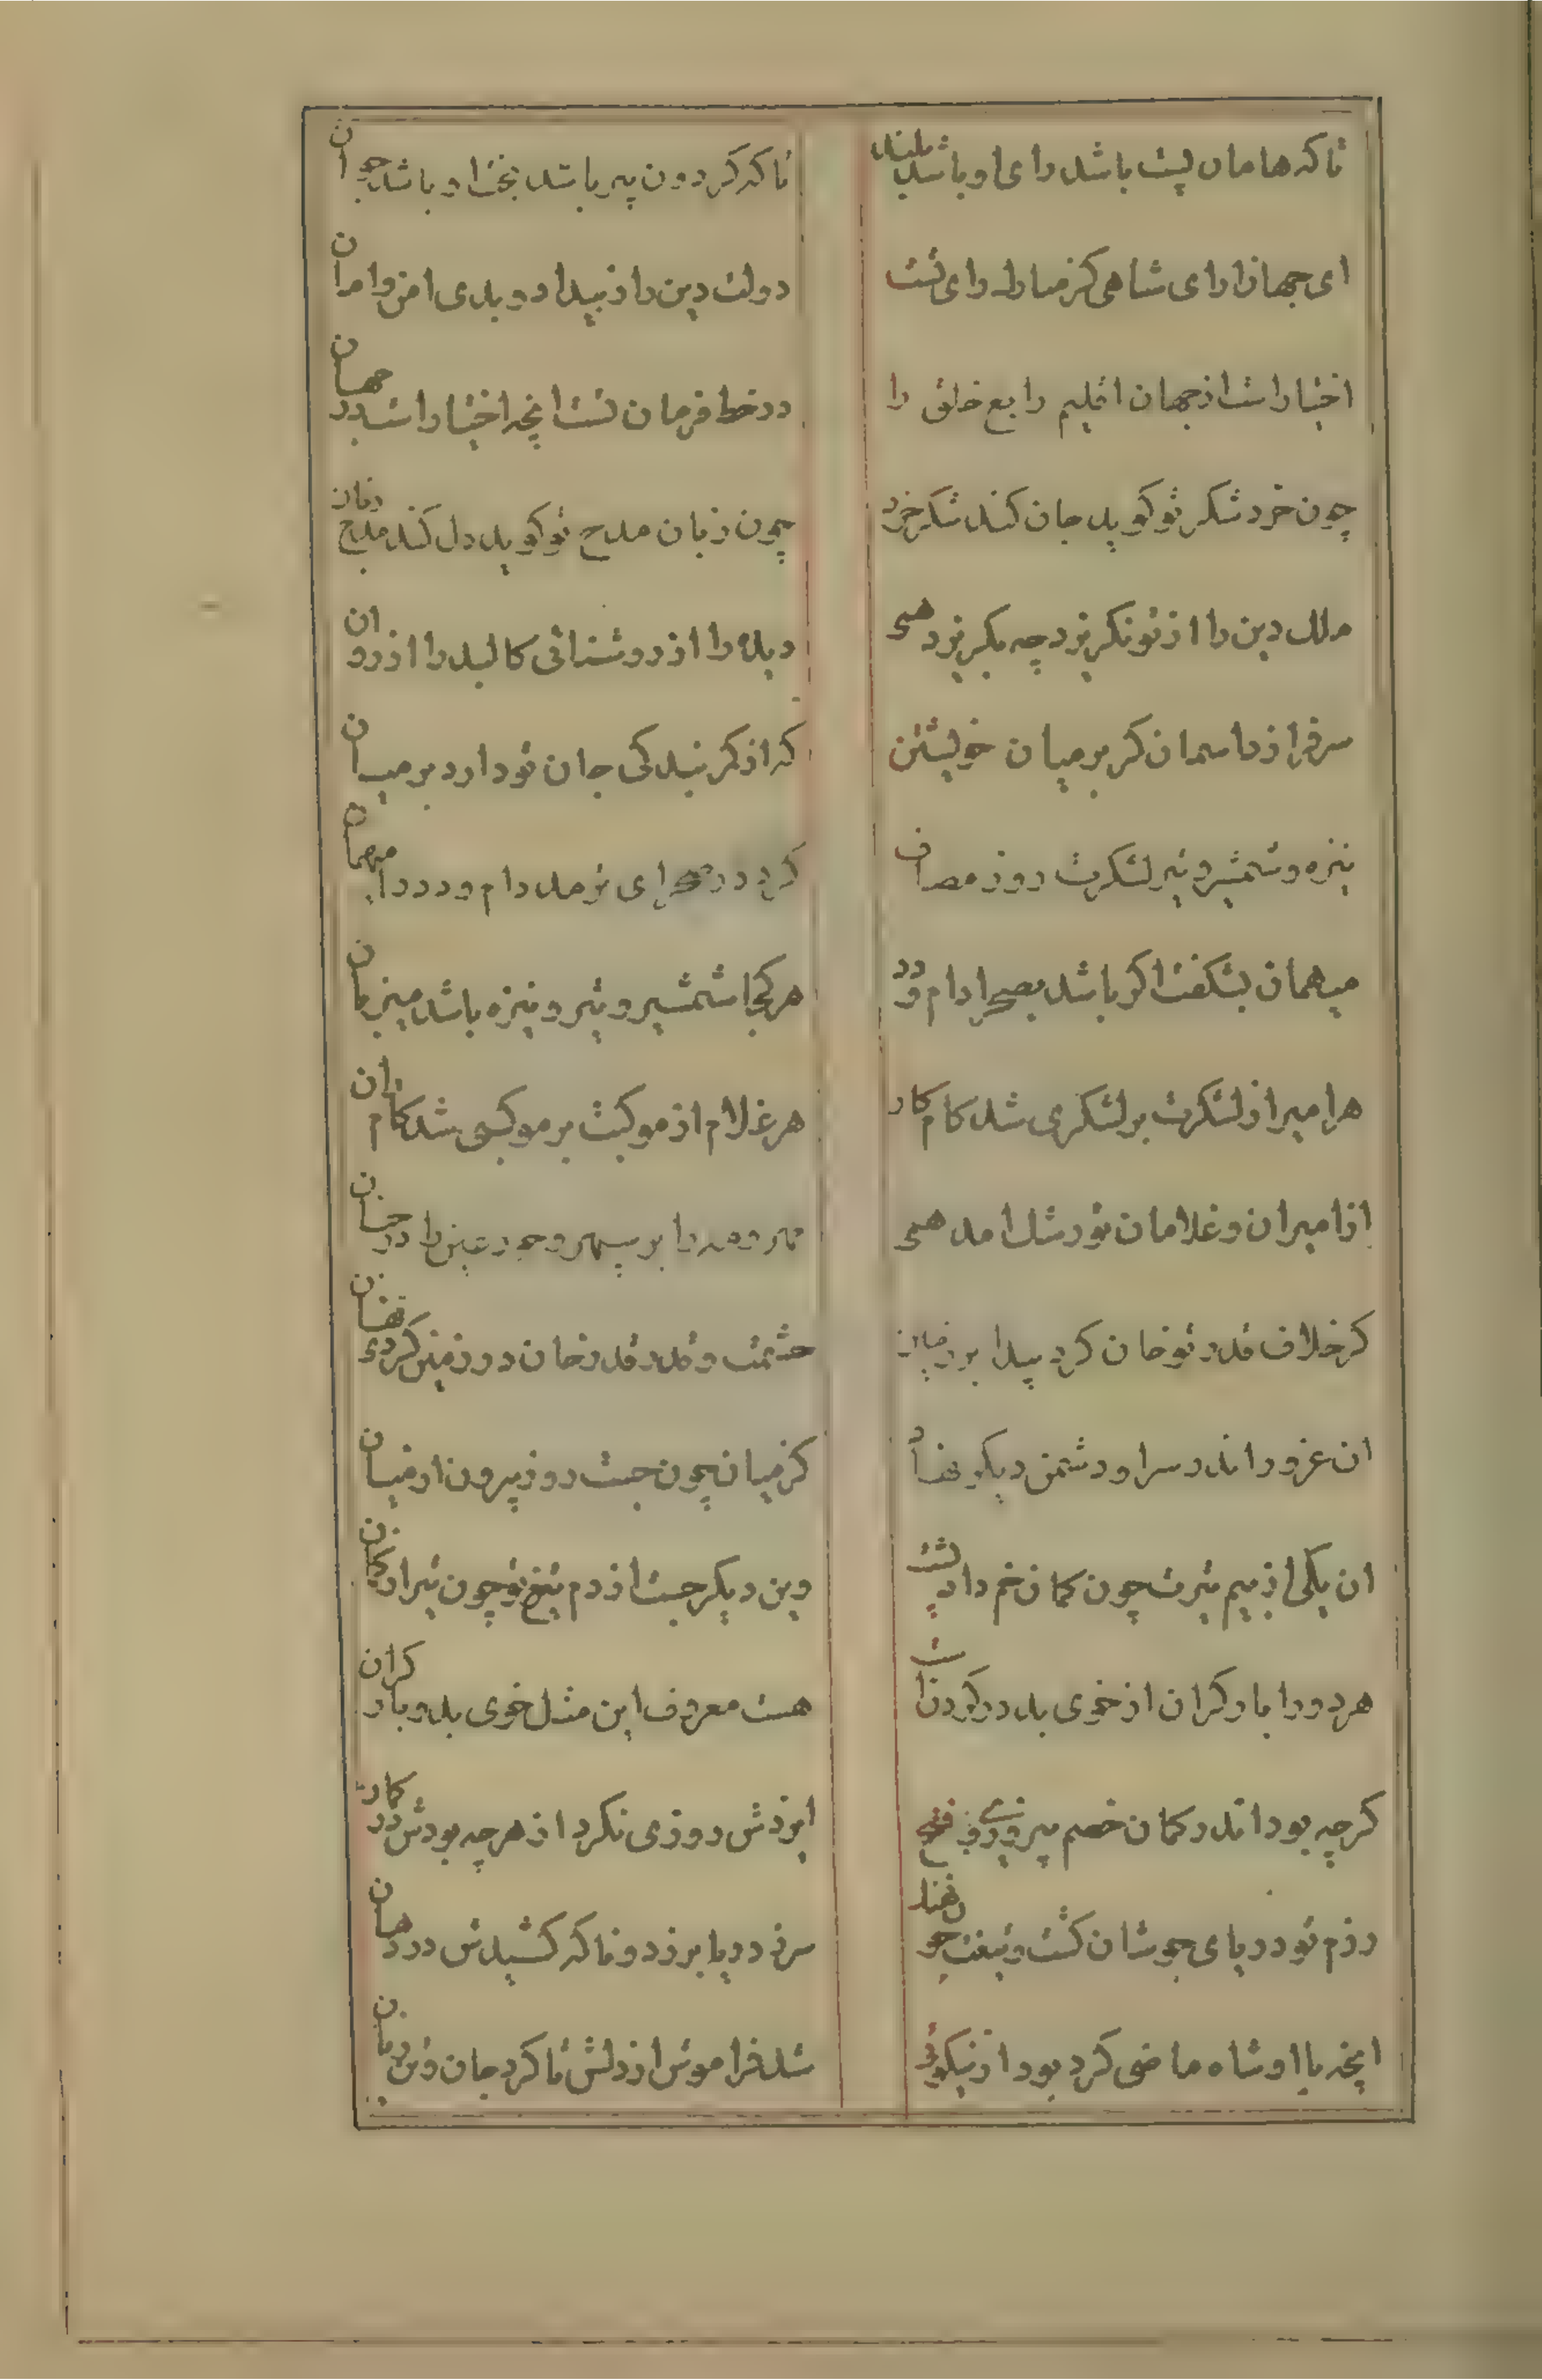 تا که هامان پست باشد رای او باشد بلند
تا که کردون پیر باشد بخت او باشد جوان
ای جهاندارای شاهی کز مبارک رای تست
دولت دین را ز بیداد و بدی امن و امان
اختیار است از جهان اقلیم رابع خلق را
در خط فرمان تست انچه اختیار است در جهان
چون خرد شکر تو کوید جان کند شکر خرد
چون زبان مدح تو کوید دل کند مدح زبان
ملک دین را از تو نکریزد چه بکریزد همی
دیده را از روشنائی کالبد را از روان
سرفرازد اسمان کر بر میان خویشتن
که از کمر بندکی جان تو دارد بر میان
نیزه و شمشیر و تیر لشکرت روز مصاف
دام و دد را میهمان
میهمان بشکفت اکر باشد بصحرا دام و دد
هر کجا شمشیر و تیر و نیزه باشد میزبان
هر امیر از لشکرت بر لشکری شد کام کار
هر غلام از موکبت بر موکبی شد کام ران
از امیران و غلامان تو رشک امد همی
را بر سپهر و حور عین را در جنان
کر خلاف قدر تو خان کرد پیدا بر زمان
حشمت و قدر قدر خان در زمین کردی نهان
ان غرور اندر سر او دشمن دیکر
کز میان چون جست روز بیرون از میان
ان یکی از بیم تیرت چون کمان خم داد پشت
وین دیکر جست از دم تیغ تو چون تیر از کمان
هر دو را بار کران از خوی بد در کردن است
هست معروف این مثل خوی بد و بار کران
کرچه بود اندر کمان خصم پیروزی و فتح
ایزدش روزی نکرد از هرچه بودش در کمان
رزم تو دریای جوشان کشت و تیغت چو نهنک
سر ز دریا برزد و ناکه کشیدش در دهان
انچه با او شاه ماضی کرد بود از نیکوئی
شد فراموش از دلش تا کرد جان و تن